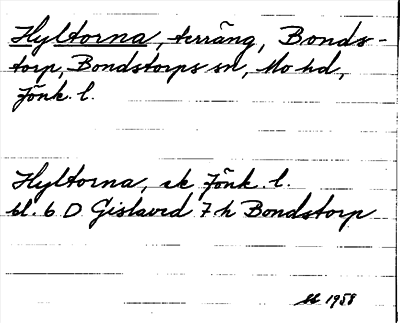 Hyltorna, terräng, Bonds-
torp, Bondstorps sn, Mo hd,
Jönk. l.
Hyltorna, ek Jönk. l.
bl. 6 D Gislaved 7 h Bondstorp
1958